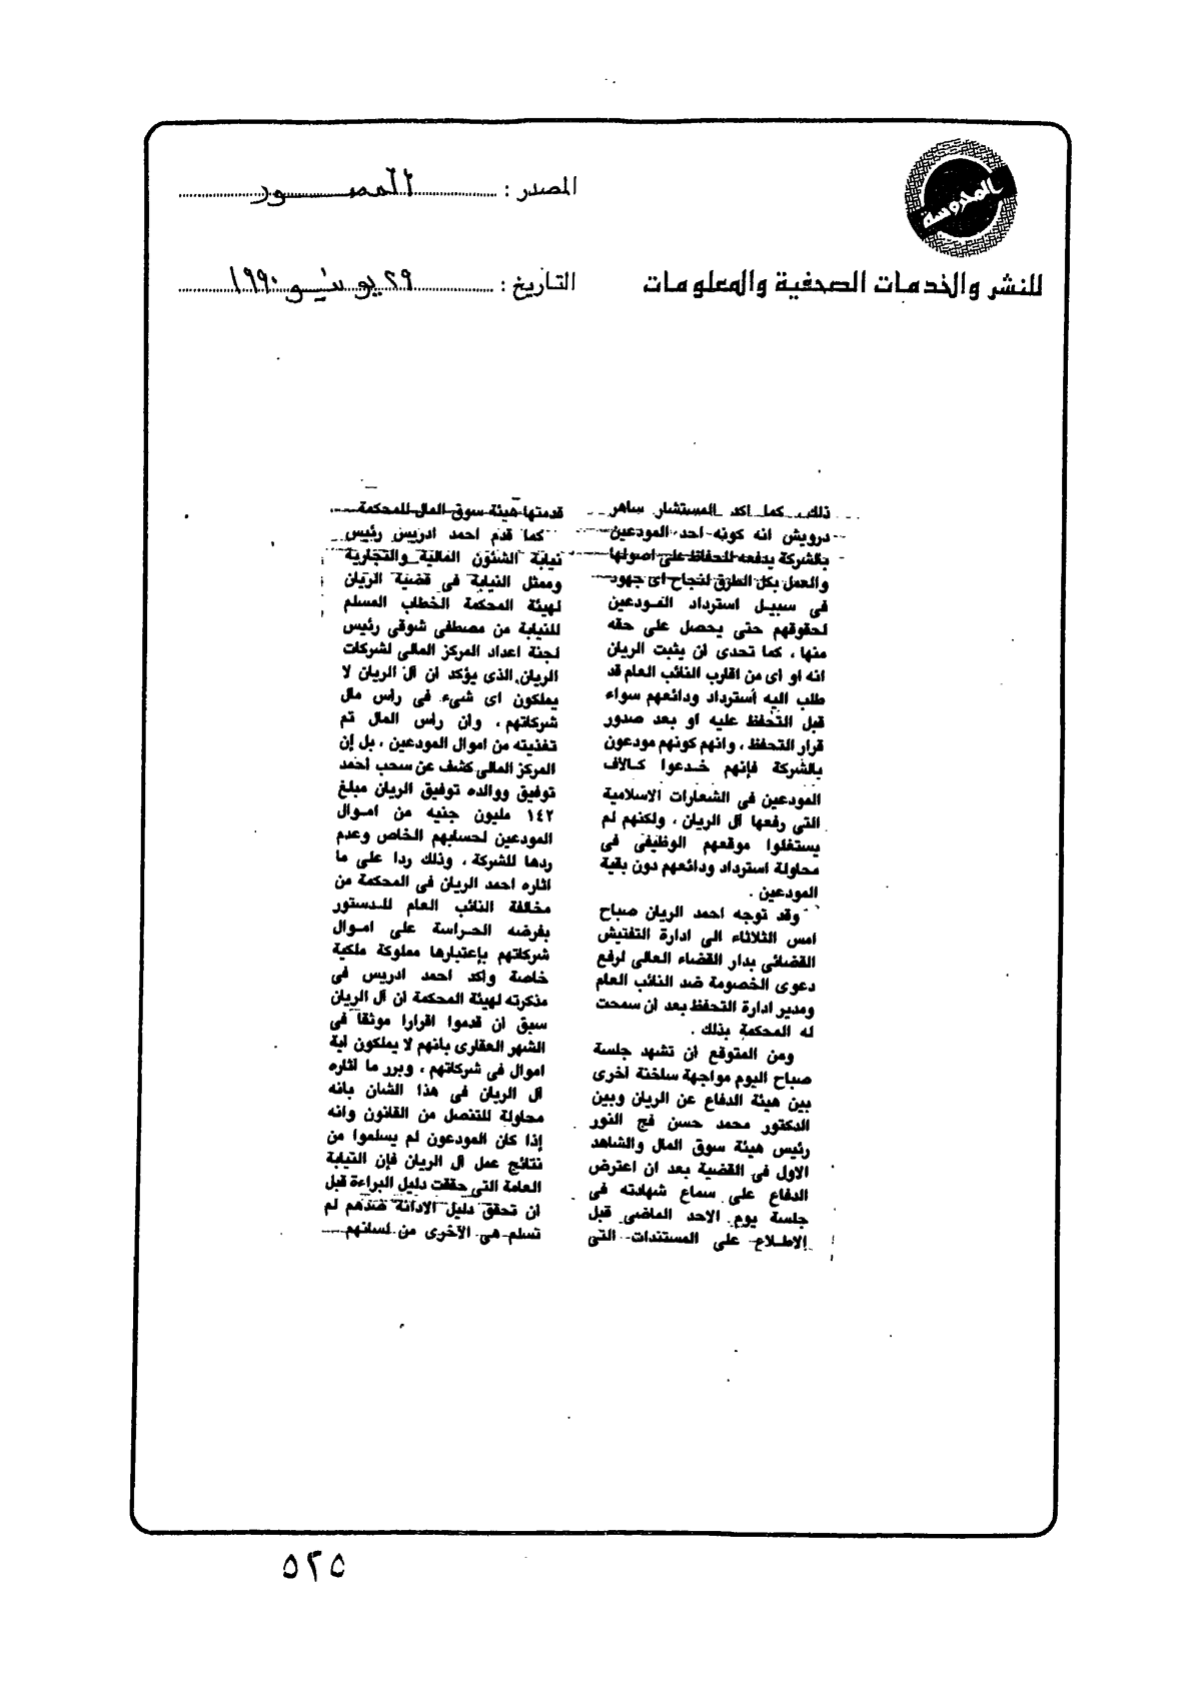 المحروسة
المصدر : المصور
للنشر والخدمات الصحفية والمعلومات
التاريخ : ٢٩ يونيو ١٩٩٠
ذلك، كما اكد المستشار ساهر
درويش انه كونه احد المودعين
بالشركة يدفعه للحفاظ على اصولها
والعمل بكل الطرق لنجاح اى جهود
فى سبيل استرداد المودعين
لحقوقهم حتى يحصل على حقه
منها ، كما تحدى ان يثبت الريان
انه او اى من اقارب النائب العام قد
طلب اليه أسترداد ودائعهم سواء
قبل التحفظ عليه او بعد صدور
قرار التحفظ ، وانهم كونهم مودعون
بالشركة فإنهم خدعوا كالاف
المودعين فى الشعارات الاسلامية
التى رفعها آل الريان ، ولكنهم لم
يستغلوا موقعهم الوظيفى فى
محاولة استرداد ودائعهم دون بقية
المودعين .
وقد توجه احمد الريان صباح
امس الثلاثاء الى ادارة التفتيش
القضائى بدار القضاء العالى لرفع
دعوى الخصومة ضد النائب العام
ومدير ادارة التحفظ بعد ان سمحت
له المحكمة بذلك .
ومن المتوقع أن تشهد جلسة
صباح اليوم مواجهة ساخنة اخرى
بين هيئة الدفاع عن الريان وبين
الدكتور محمد حسن فج النور
رئيس هيئة سوق المال والشاهد
الاول فى القضية بعد ان اعترض
الدفاع على سماع شهادته فى
جلسة يوم الاحد الماضى قبل
الاطلاع على المستندات التى
قدمتها هيئة سوق المال للمحكمة
كما قدم احمد ادريس رئيس
نيابة الشئون المالية والتجارية
وممثل النيابة فى قضية الريان
لهيئة المحكمة الخطاب المسلم
للنيابة من مصطفى شوقى رئيس
لجنة اعداد المركز المالى لشركات
الريان الذى يؤكد ان آل الريان لا
يملكون اى شىء فى راس مال
شركاتهم ، وان راس المال تم
تغذيته من اموال المودعين ، بل إن
المركز المالى كشف عن سحب احمد
توفيق ووالده توفيق الريان مبلغ
١٤٢ مليون جنيه من اموال
المودعين لحسابهم الخاص وعدم
ردها للشركة ، وذلك ردا على ما
اثاره احمد الريان فى المحكمة من
مخالفة النائب العام للدستور
بفرضه الحراسة على اموال
شركاتهم بإعتبارها مملوكة ملكية
خاصة واكد احمد ادريس فى
مذكرته لهيئة المحكمة ان آل الريان
سبق ان قدموا اقرارا موثقا فى
الشهر العقارى بانهم لا يملكون اية
اموال فى شركاتهم ، وبرر ما اثاره
آل الريان فى هذا الشان بانه
محاولة للتنصل من القانون وانه
إذا كان المودعون لم يسلموا من
نتائج عمل آل الريان فإن النيابة
العامة التى حققت دليل البراءة قبل
ان تحقق دليل الادانة ضدهم لم
تسلم هى الآخرى من لسانهم
٥٢٥